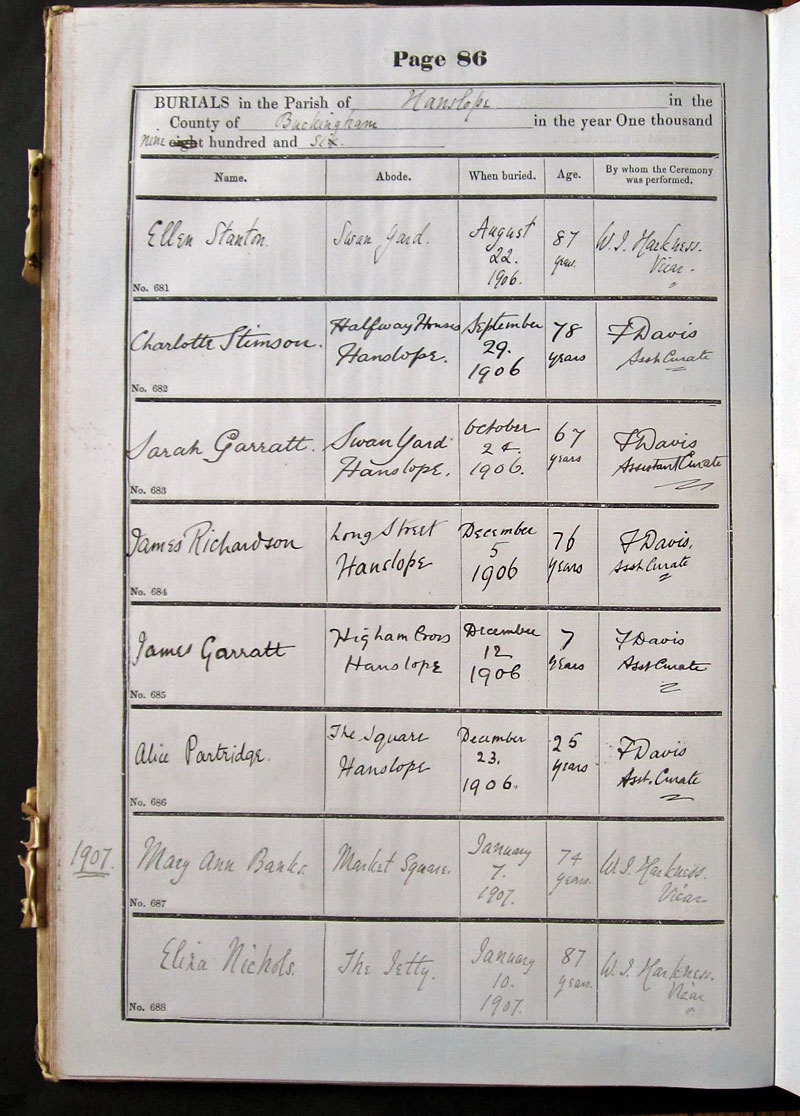 Page 86
BURIALS in the Parish of Hanslope in the
County of Buckingham in the year One thousand
nine eight hundred and six.
Name. Abode. When buried. Age. By whom the Ceremony was performed.
Ellen Stanton. Swan Yard. August 22. 1906. 87 years. W. J. Harkness. Vicar.
No. 681
Charlotte Stimson. Halfway Houses Hanslope. September 29. 1906 78 years F Davis Asst Curate
No. 682
Sarah Garratt. Swan Yard Hanslope. October 24. 1906. 67 years F Davis Assistant Curate
No. 683
James Richardson Long Street Hanslope December 5 1906 76 years F Davis. Asst Curate
No. 684
James Garratt Higham Cross Hanslope December 12 1906 7 years F Davis Asst Curate
No. 685
Alice Partridge. The Square Hanslope December 23. 1906. 25 years F Davis Asst. Curate
No. 686
1907. Mary Ann Banks. Market Square. January 7. 1907. 74 years. W. J. Harkness. Vicar
No. 687
Eliza Nichols. The Jetty. January 10. 1907. 87 years. W. J. Harkness. Vicar
No. 688